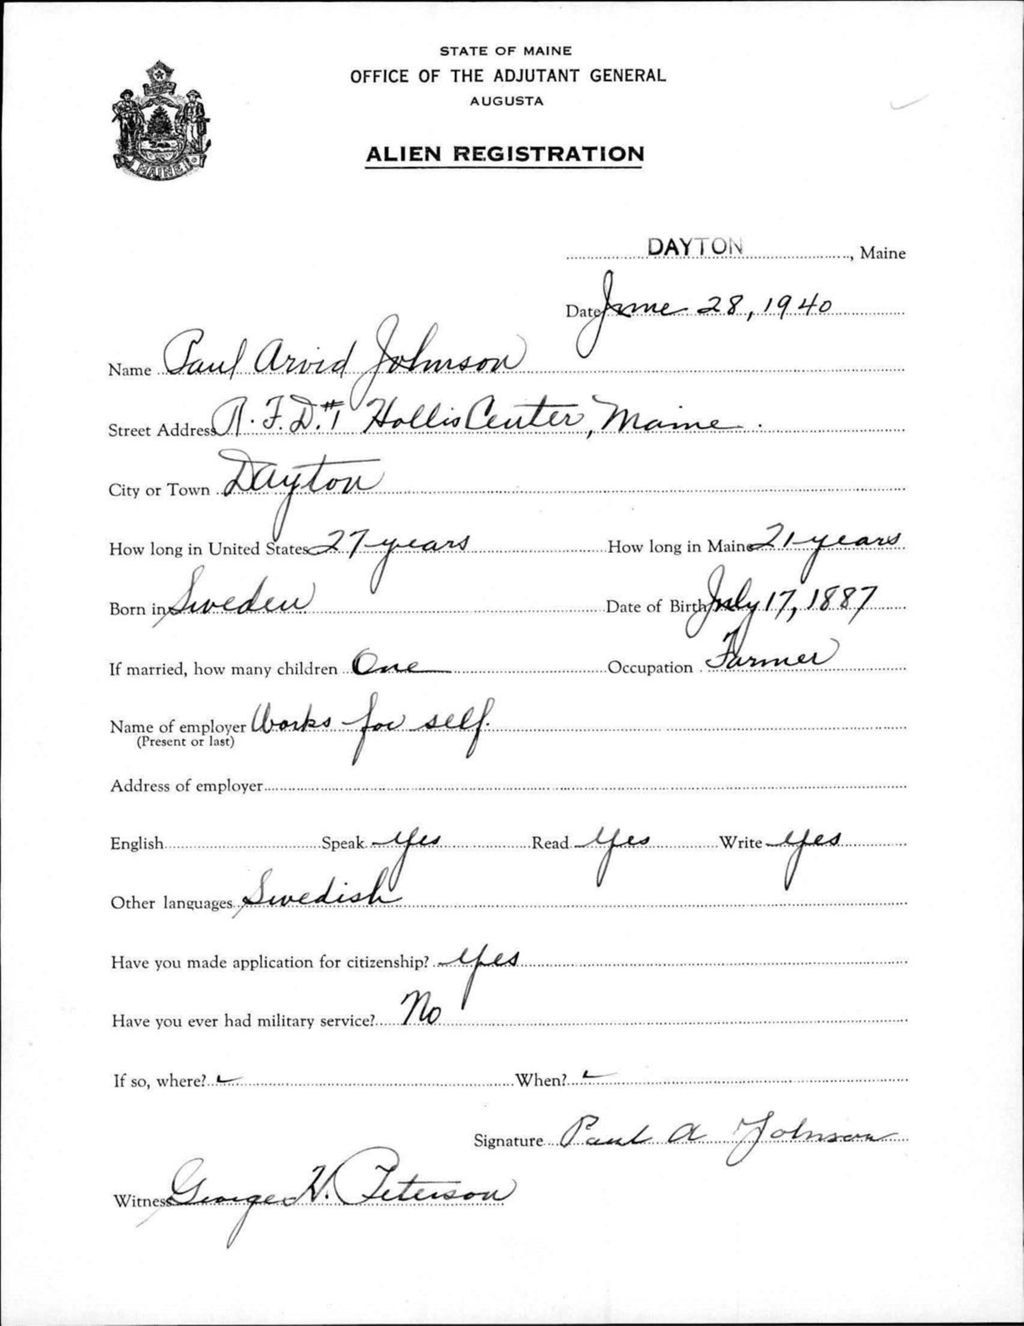 STATE OF MAINE
OFFICE OF THE ADJUTANT GENERAL
AUGUSTA
ALIEN REGISTRATION
MAINE
DAYTON, Maine
Date June 28, 1940
Name Paul Arvid Johnson
Street Address R.F.D.#1 Hollis Center, Maine.
City or Town Dayton
How long in United States 27 years How long in Maine 21 years
Born in Sweden Date of Birth July 17, 1887
If married, how many children One Occupation Farmer
Name of employer Works for self.
(Present or last)
Address of employer
English Speak Yes Read Yes Write Yes
Other languages Swedish
Have you made application for citizenship? Yes
Have you ever had military service? No
If so, where? When?
Signature Paul A Johnson
Witness George H. Peterson